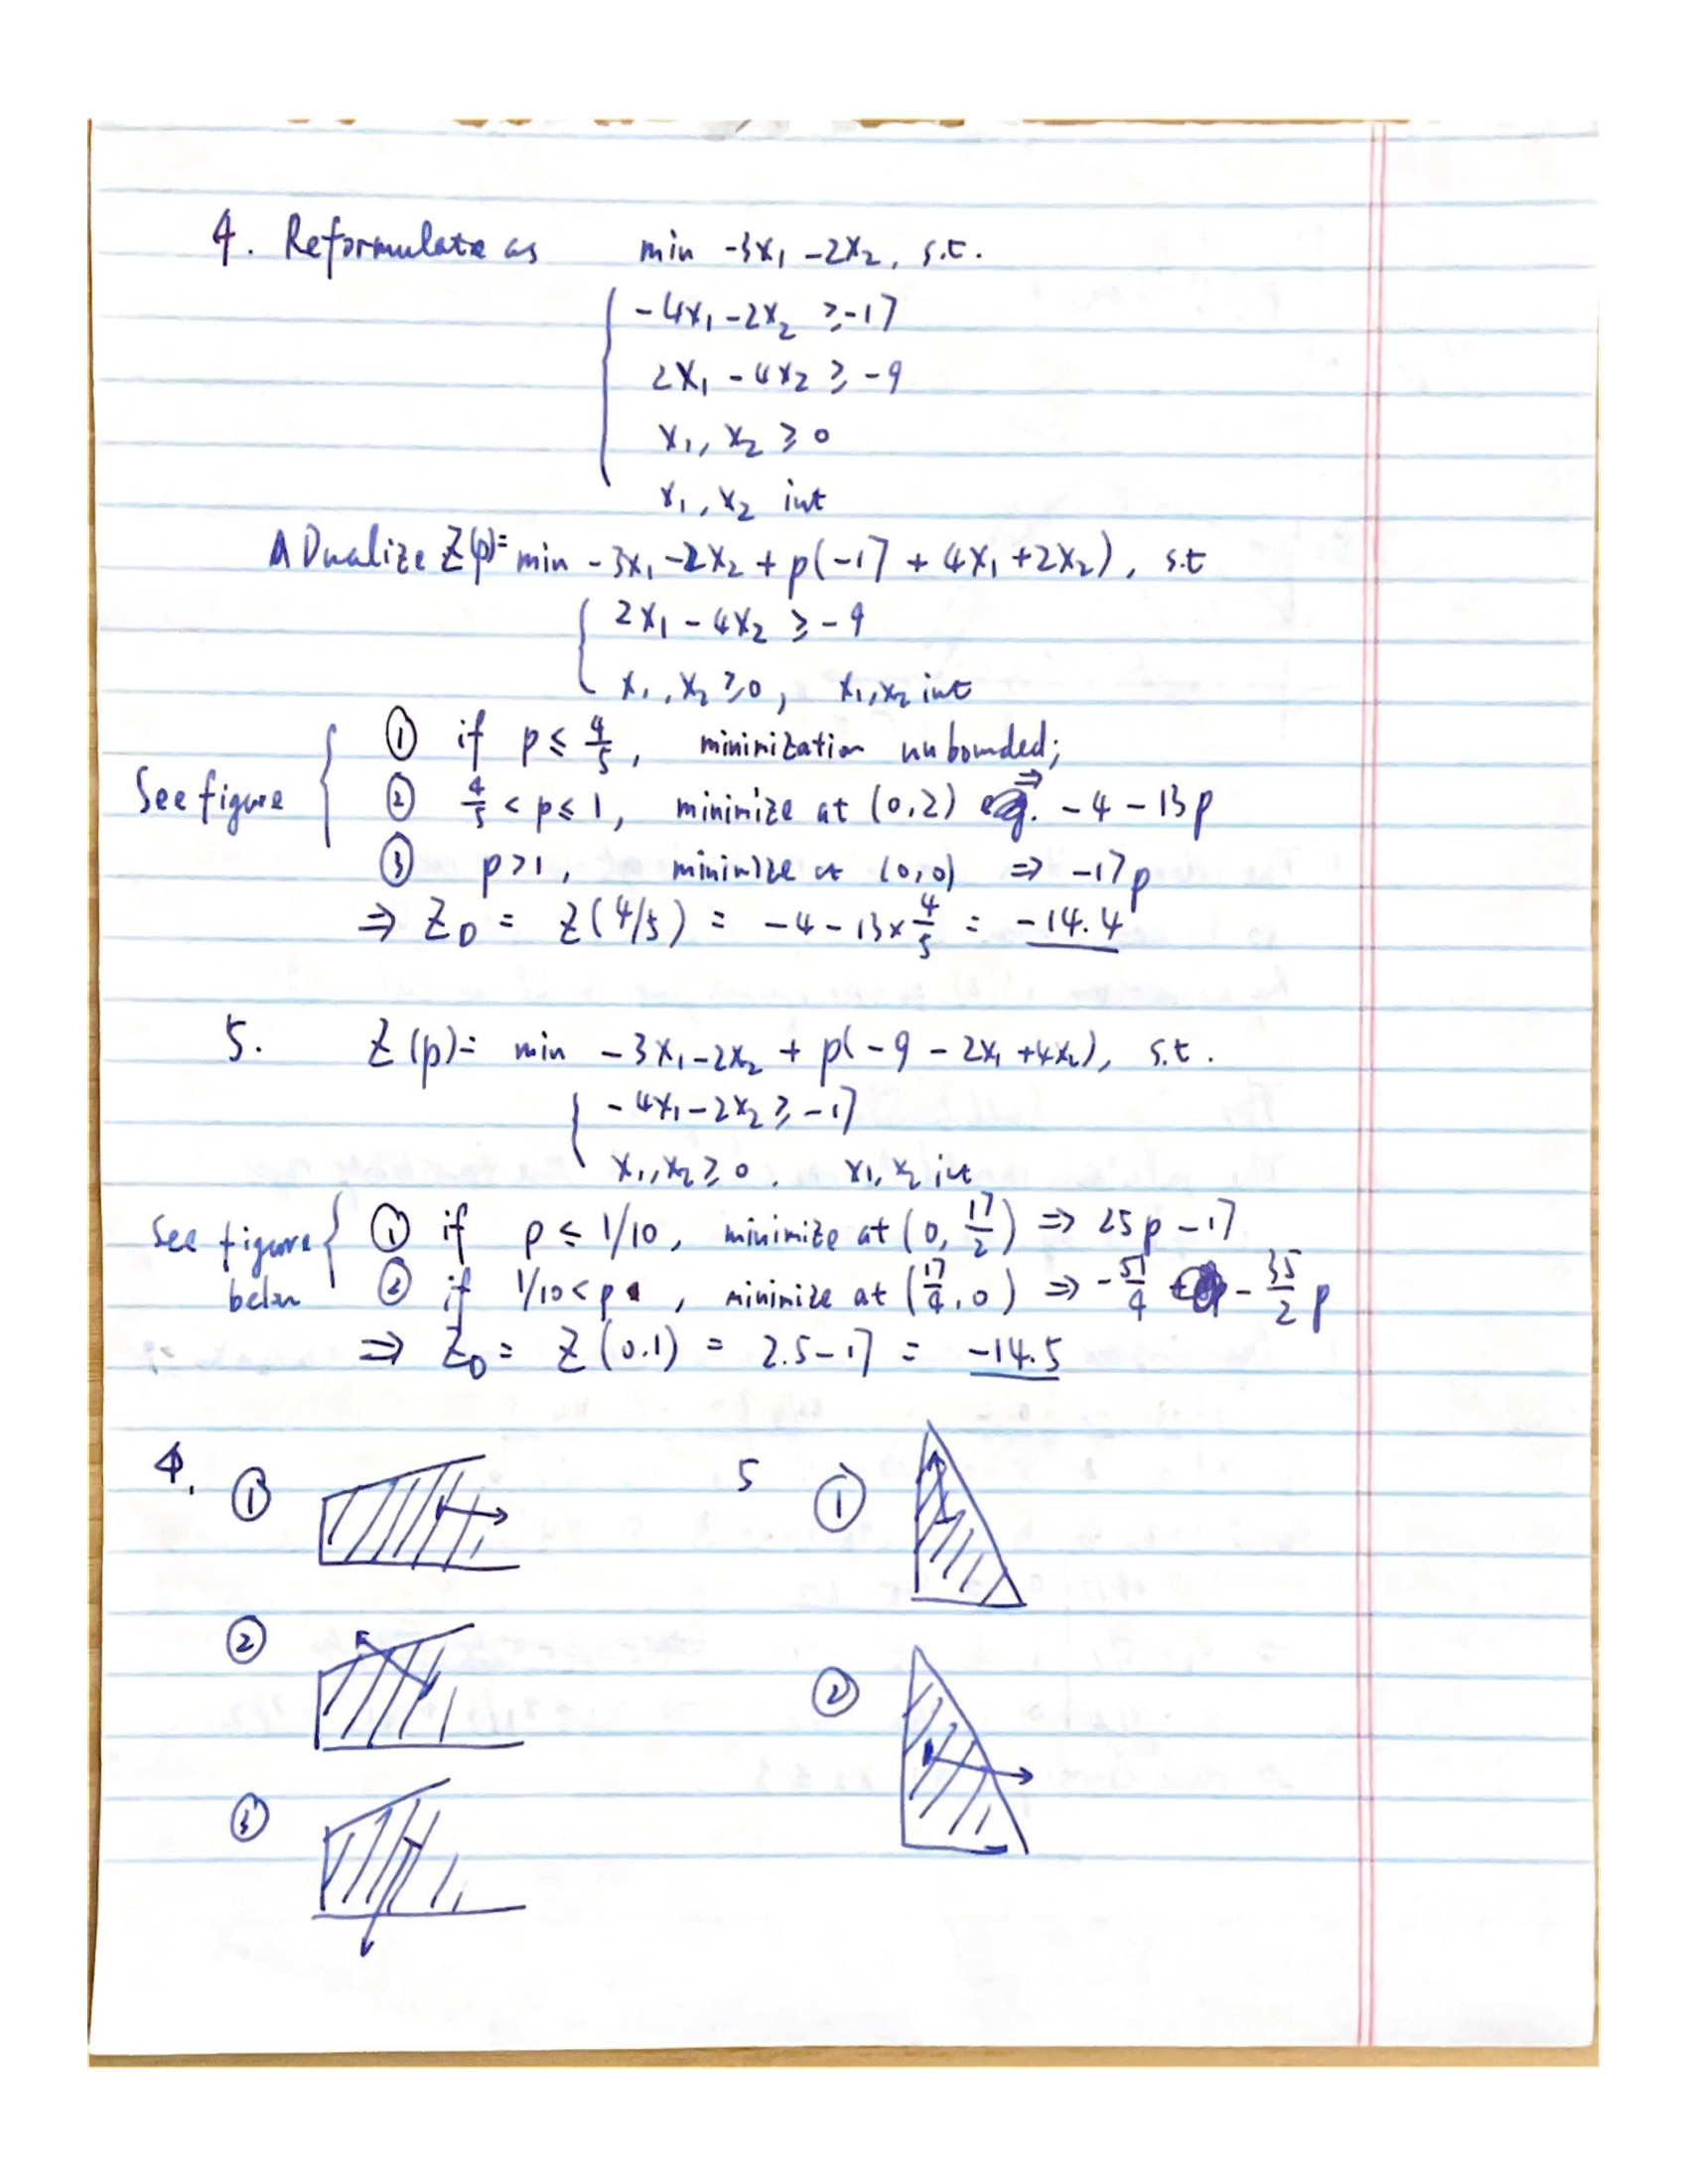 4. Reformulate as min -3x₁ -2x₂, s.t.
-4x₁ -2x₂ ≥ -17
2x₁ - 4x₂ ≥ -9
x₁, x₂ ≥ 0
x₁, x₂ int
Dualize Z(p)= min -3x₁ -2x₂ + p(-17 + 4x₁ +2x₂), s.t
2x₁ - 4x₂ ≥ -9
x₁, x₂ ≥ 0, x₁, x₂ int
See figure
① if p ≤ 4/5, minimization unbounded;
② 4/5 < p ≤ 1, minimize at (0,2) ⇒ -4 - 13p
③ p > 1, minimize at (0,0) ⇒ -17p
⇒ Z_D = Z(4/5) = -4 - 13 × 4/5 = -14.4
5. Z(p) = min -3x₁ -2x₂ + p(-9 - 2x₁ +4x₂), s.t.
-4x₁ -2x₂ ≥ -17
x₁, x₂ ≥ 0. x₁, x₂ int
See figure below
① if p ≤ 1/10, minimize at (0, 17/2) ⇒ 25p - 17
② if 1/10 < p , minimize at (17/4, 0) ⇒ -51/4 - 35/2 p
⇒ Z_D = Z(0.1) = 2.5 - 17 = -14.5
4. ① 5 ①
② ②
③